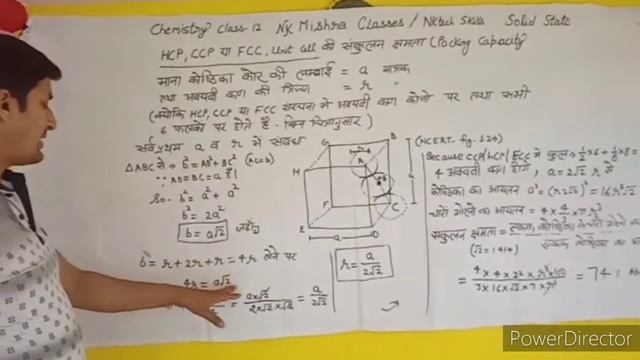 Chemistry class-12 NK Mishra Classes / NKtech Skills Solid State
HCP, CCP या FCC, Unit Cell की संकुलन क्षमता (Packing Capacity
माना कोष्ठिका कोर की लम्बाई = a मात्रक
तथा अवयवी कण की त्रिज्या = r "
(क्योंकि HCP, CCP या FCC संरचना में अवयवी कण कोनों पर तथा सभी
6 फलकों पर होते हैं - चित्रानुसार)
सर्वप्रथम a व r में संबंध
ΔABC से - b² = AB² + BC²
∵ AB = BC = a
So- b² = a² + a²
b² = 2a²
b = a√2
b = r + 2r + r = 4r लेने पर
4r = a√2
= a×√2 / 2×√2×√2 = a / 2√2
r = a / 2√2
G
B
H
A
F
C
E
D
a
(NCERT- fig. 1.24)
Because CCP/HCP/FCC में कुल = 1/2 × 6 + 1/8 × 8 =
4 अवयवी कण होंगे, a = 2√2 r से
कोष्ठिका का आयतन a³ = (r2√2)³ = 16r³√2
चारों गोलों का आयतन = 4 × 4/3 × π r³
संकुलन क्षमता =
(√2 = 1.414)
= 74
PowerDirector